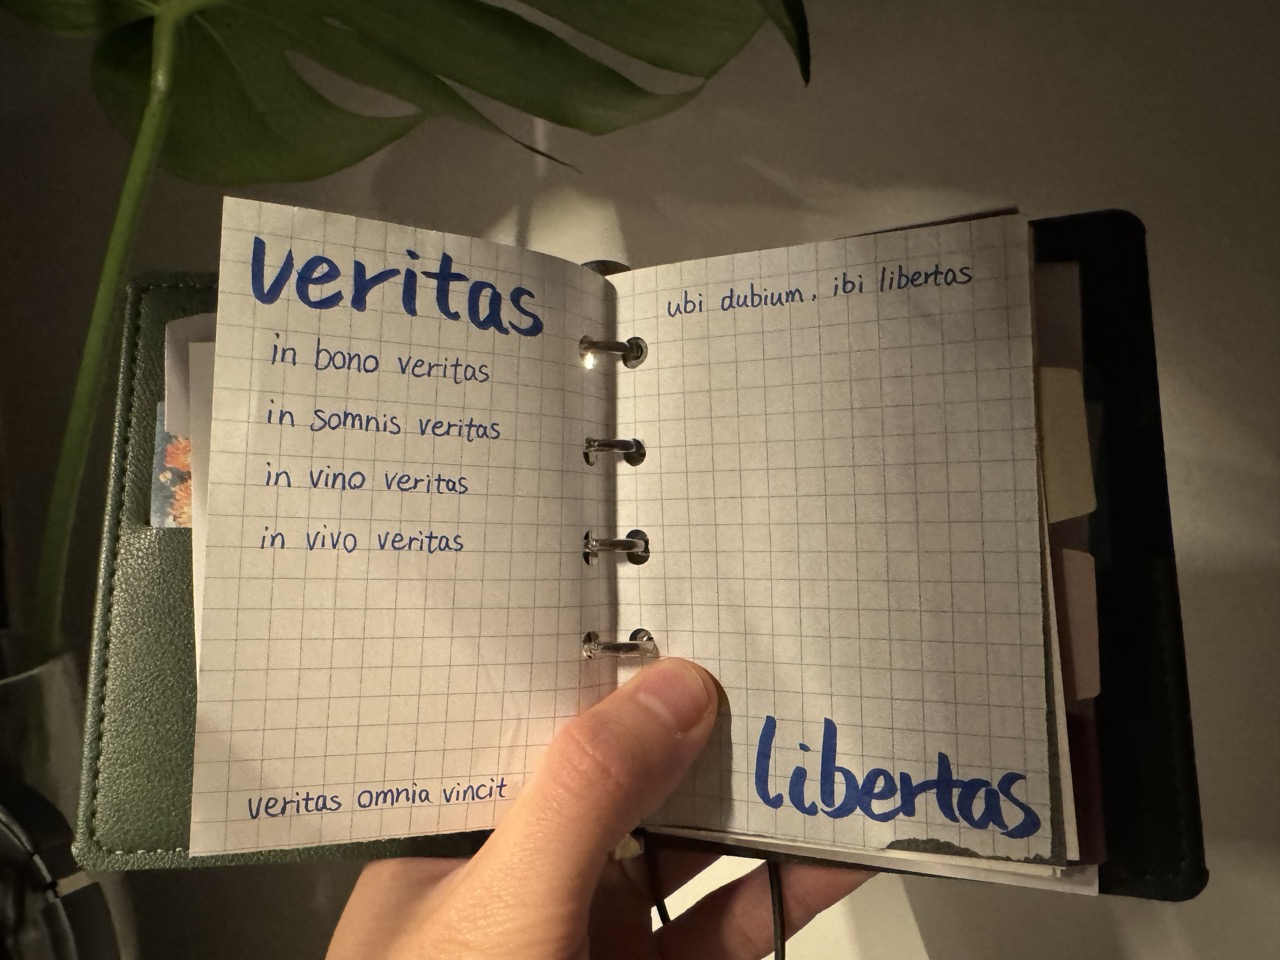 veritas
in bono veritas
in somnis veritas
in vino veritas
in vivo veritas
veritas omnia vincit
ubi dubium, ibi libertas
libertas